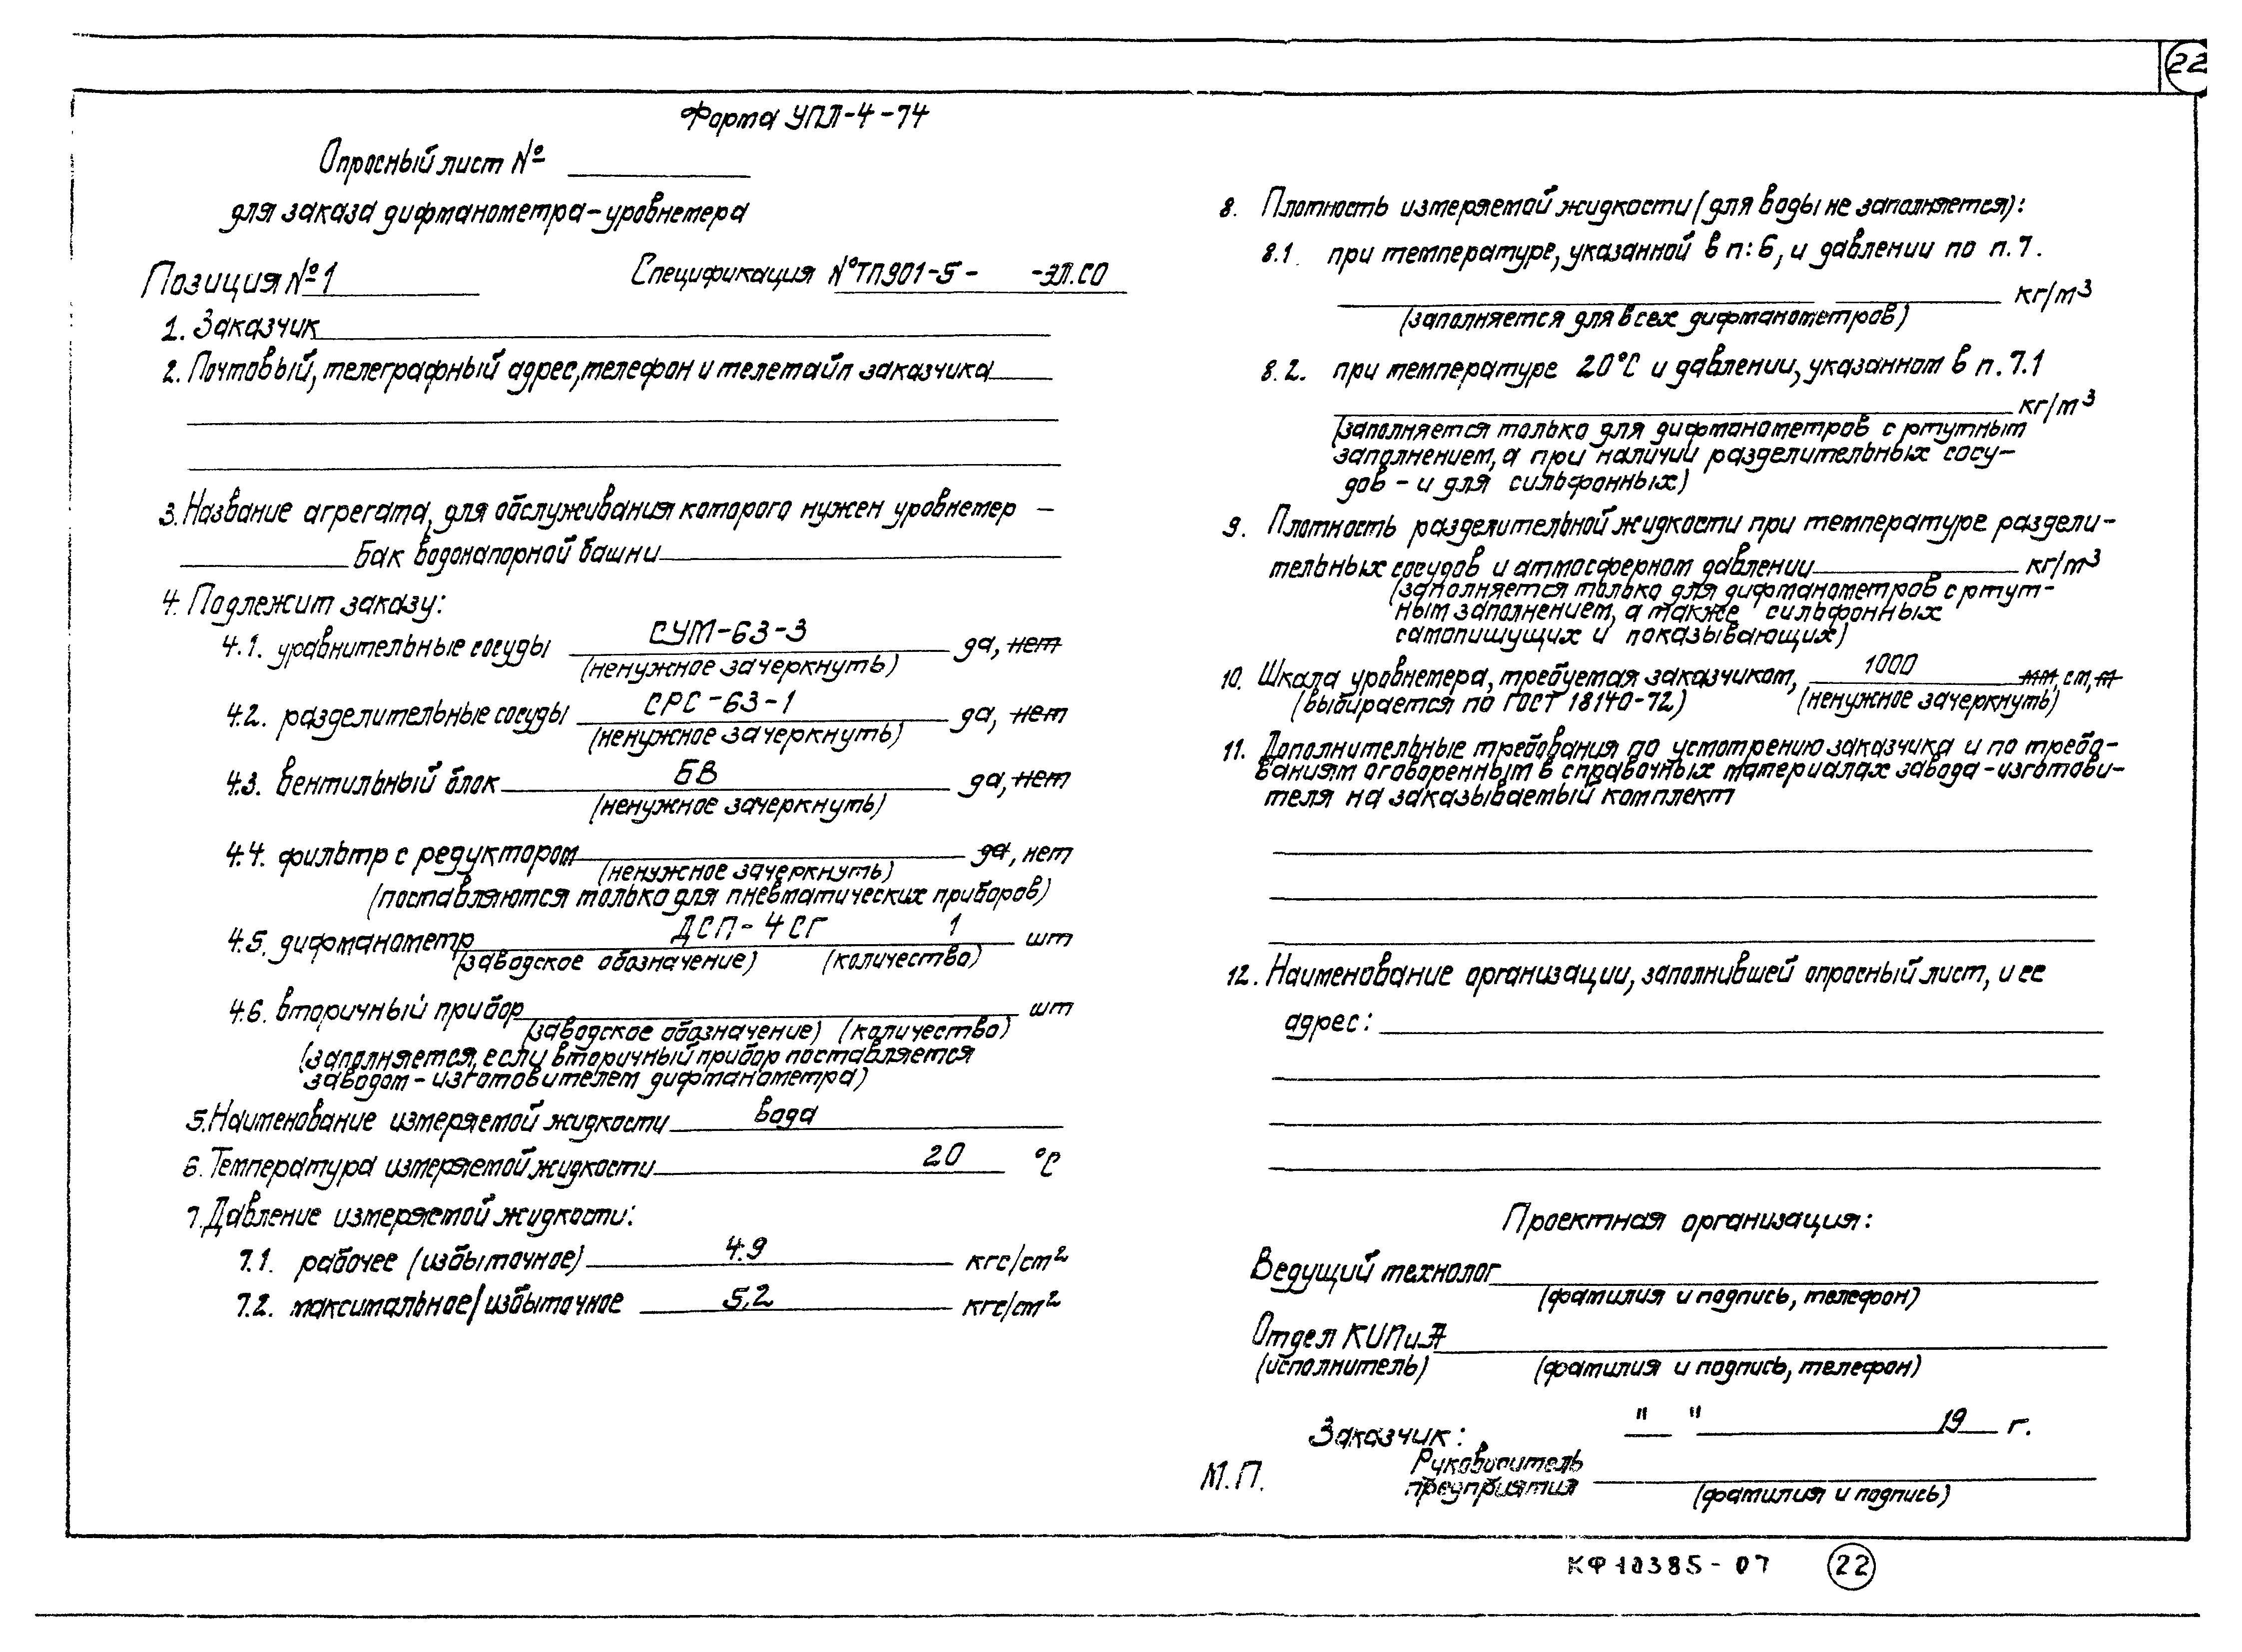 22
Форма УПЛ-4-74
Опросный лист №
для заказа дифманометра-уровнемера
Позиция №1
Спецификация №ТП901-5- -ЭЛ.СО
1. Заказчик
2. Почтовый, телеграфный адрес, телефон и телетайп заказчика
3. Название агрегата, для обслуживания которого нужен уровнемер –
бак водонапорной башни
4. Подлежит заказу:
4.1. уравнительные сосуды СУМ-63-3 да, нет
(ненужное зачеркнуть)
4.2. разделительные сосуды СРС-63-1 да, нет
(ненужное зачеркнуть)
4.3. вентильный блок БВ да, нет
(ненужное зачеркнуть)
4.4. фильтр с редуктором да, нет
(ненужное зачеркнуть)
(поставляются только для пневматических приборов)
4.5. дифманометр ДСП-4СГ 1 шт
(заводское обозначение) (количество)
4.6. вторичный прибор шт
(заводское обозначение) (количество)
(заполняется, если вторичный прибор поставляется
заводом-изготовителем дифманометра)
5. Наименование измеряемой жидкости вода
6. Температура измеряемой жидкости 20 °С
7. Давление измеряемой жидкости:
7.1. рабочее (избыточное) 4.9 кгс/см²
7.2. максимальное/избыточное 5,2 кгс/см²
8. Плотность измеряемой жидкости (для воды не заполняется):
8.1. при температуре, указанной в п: 6, и давлении по п.7.
кг/м³
(заполняется для всех дифманометров)
8.2. при температуре 20°С и давлении, указанном в п.7.1
кг/м³
(заполняется только для дифманометров с ртутным
заполнением, а при наличии разделительных сосу-
дов – и для сильфонных)
9. Плотность разделительной жидкости при температуре раздели-
тельных сосудов и атмосферном давлении кг/м³
(заполняется только для дифманометров с ртут-
ным заполнением, а также сильфонных
самопишущих и показывающих)
10. Шкала уровнемера, требуемая заказчиком, 1000 мм, см, м
(выбирается по ГОСТ 18140-72) (ненужное зачеркнуть)
11. Дополнительные требования по усмотрению заказчика и по требо-
ваниям оговоренным в справочных материалах завода-изготови-
теля на заказываемый комплект
12. Наименование организации, заполнившей опросный лист, и ее
адрес:
Проектная организация:
Ведущий технолог
(фамилия и подпись, телефон)
Отдел КИПиА
(исполнитель) (фамилия и подпись, телефон)
Заказчик: " " 19 г.
М.П. Руководитель
предприятия
(фамилия и подпись)
КФ 10385-07 22